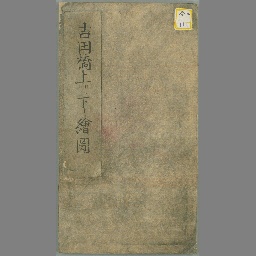 吉田橋上下繪圖